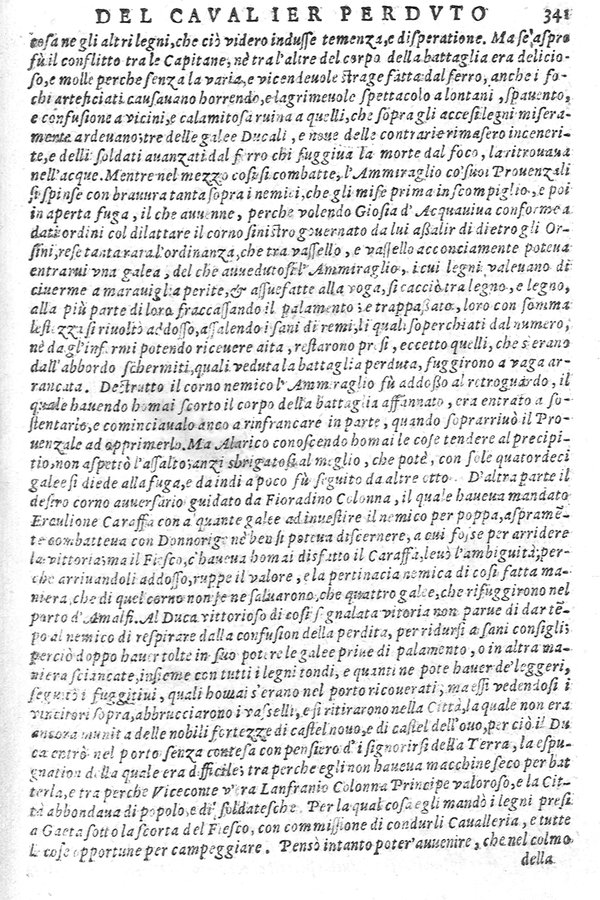 DEL CAVALIER PERDVTO 341
cosa ne gli altri legni, che ciò videro indusse temenza, e disperatione. Ma se aspro
fù il conflitto tra le Capitane, nè tra l'altre del corpo della battaglia era delicio-
so, e molle perche senza la varia, e vicendeuole strage fatta dal ferro, anche i fo-
chi arteficiati causauano horrendo, e lagrimeuole spettacolo a lontani, spauento,
e confusione a vicini, e calamitosa ruina a quelli, che sopra gli accesi legni misera-
mente ardeuano; tre delle galee Ducali, e noue delle contrarie rimasero inceneri-
te, e delli soldati auanzati dal ferro chi fuggiua la morte dal foco, la ritrouaua
nell'acque. Mentre nel mezzo così si combatte, l'Ammiraglio co' suoi Prouenzali
si spinse con brauura tanta sopra i nemici, che gli mise prima in scompiglio, e poi
in aperta fuga, il che auuenne, perche volendo Giosia d'Acquauiua conforme a
dati ordini col dilattare il corno sinistro gouernato da lui assalir di dietro gli Or-
sini, rese tanta rara l'ordinanza, che tra vassello, e vassello acconciamente poteua
entrarui vna galea, del che auuedutosi l'Ammiraglio, i cui legni valeuano di
ciuerme a marauiglia perite, & assuefatte alla voga, si cacciò tra legno, e legno,
alla più parte di loro fracassando il palamento; e trappassato, loro con somma
lestezza si riuoltò addosso, assalendo i sani di remi, li quali soperchiati dal numero,
nè da gl'infermi potendo riceuere aita, restarono presi, eccetto quelli, che s'erano
dall'abbordo schermiti, quali veduta la battaglia perduta, fuggirono a vaga ar-
rancata. Destrutto il corno nemico l'Ammiraglio fù addosso al retroguardo, il
quale hauendo homai scorto il corpo della battaglia affannato, era entrato a so-
stentario, e cominciaualo anco a rinfrancare in parte, quando soprarriuò il Pro-
uenzale ad opprimerlo. Ma Alarico conoscendo homai le cose tendere al precipi-
tio, non aspettò l'assalto; anzi sbrigatosi al meglio, che potè, con sole quatordeci
galee si diede alla fuga, e da indi a poco fù seguito da altre otto. D'altra parte il
destro corno auuersario guidato da Fioradino Colonna, il quale haueua mandato
Erculione Caraffa con a quante galee ad inuestire il nemico per poppa, aspramē-
te combatteua con Donnorige nè ben si poteua discernere, a cui fosse per arridere
la vittoria; ma il Fiesco, c'haueua homai disfatto il Caraffa, leuò l'ambiguità; per-
che arriuandoli addosso, ruppe il valore, e la pertinacia nemica di così fatta ma-
niera, che di quel corno non se ne saluarono, che quattro galee, che rifuggirono nel
porto d'Amalfi. Al Duca vittorioso di così segnalata vitoria non parue di dar tē-
po al nemico di respirare dalla confusion della perdita, per ridursi a sani consigli;
perciò doppo hauer tolte in suo potere le galee priue di palamento, o in altra ma-
niera sciancate, insieme con tutti i legni tondi, e quanti ne pote hauer de' leggeri,
seguitò i fuggitiui, quali homai s'erano nel porto ricouerati; ma essi vedendosi i
vincitori sopra, abbrucciarono i vasselli, e si ritirarono nella Città, la quale non era
ancora munita delle nobili fortezze di castel nouo, e di castel dell'ouo, per ciò il Du
ca entrò nel porto senza contesa con pensiero d'isignorirsi della Terra, la espu-
gnation della quale era difficile; tra perche egli non haueua macchine seco per bat
terla, e tra perche Viceconte v'era Lanfranio Colonna Principe valoroso, e la Cit-
tà abbondaua di popolo, e di soldatesche. Per la qual cosa egli mandò i legni presi
a Gaeta sotto la scorta del Fiesco, con commissione di condurli Cauallleria, e tutte
le cose opportune per campeggiare. Pensò intanto poter'auuenire, che nel colmo
della